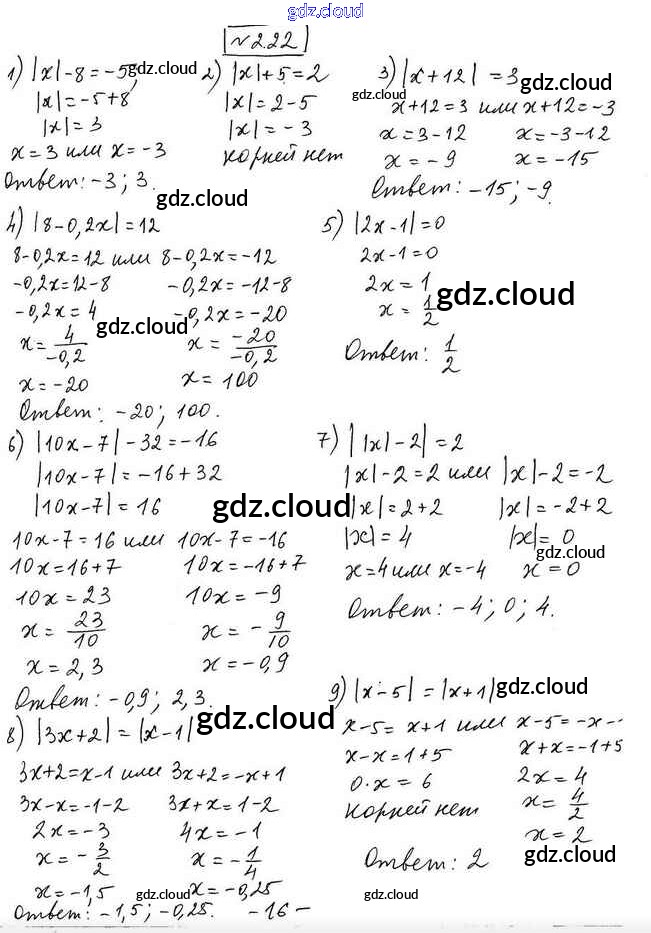 gdz.cloud
№2.22
1) |x|-8=-5;
|x|=-5+8
|x|=3
x=3 или x=-3
Ответ: -3; 3.
gdz.cloud
2) |x|+5=2
|x|=2-5
|x|=-3
корней нет
gdz.cloud
3) |x+12|=3
gdz.cloud
gdz.cloud
x+12=3 или x+12=-3
x=3-12 x=-3-12
x=-9 x=-15
Ответ: -15; -9.
4) |8-0,2x|=12
8-0,2x=12 или 8-0,2x=-12
-0,2x=12-8 -0,2x=-12-8
-0,2x=4 -0,2x=-20
gdz.cloud
x=4/-0,2 x=-20/-0,2
x=-20 x=100
Ответ: -20; 100.
5) |2x-1|=0
2x-1=0
2x=1
x=1/2
gdz.cloud
Ответ: 1/2
6) |10x-7|-32=-16
|10x-7|=-16+32
|10x-7|=16
gdz.cloud
10x-7=16 или 10x-7=-16
10x=16+7 10x=-16+7
10x=23 10x=-9
x=23/10 x=-9/10
x=2,3 x=-0,9
Ответ: -0,9; 2,3.
7) ||x|-2|=2
|x|-2=2 или |x|-2=-2
|x|=2+2 |x|=-2+2
|x|=4 |x|=0
gdz.cloud
x=4 или x=-4 x=0
Ответ: -4; 0; 4.
8) |3x+2|=|x-1|
gdz.cloud
3x+2=x-1 или 3x+2=-x+1
3x-x=-1-2 3x+x=1-2
2x=-3 4x=-1
x=-3/2 x=-1/4
x=-1,5 x=-0,25
gdz.cloud
Ответ: -1,5; -0,25.
9) |x-5|=|x+1|
gdz.cloud
x-5=x+1 или x-5=-x-
x-x=1+5 x+x=-1+5
0·x=6 2x=4
корней нет x=4/2
x=2
gdz.cloud
Ответ: 2
gdz.cloud
-16-